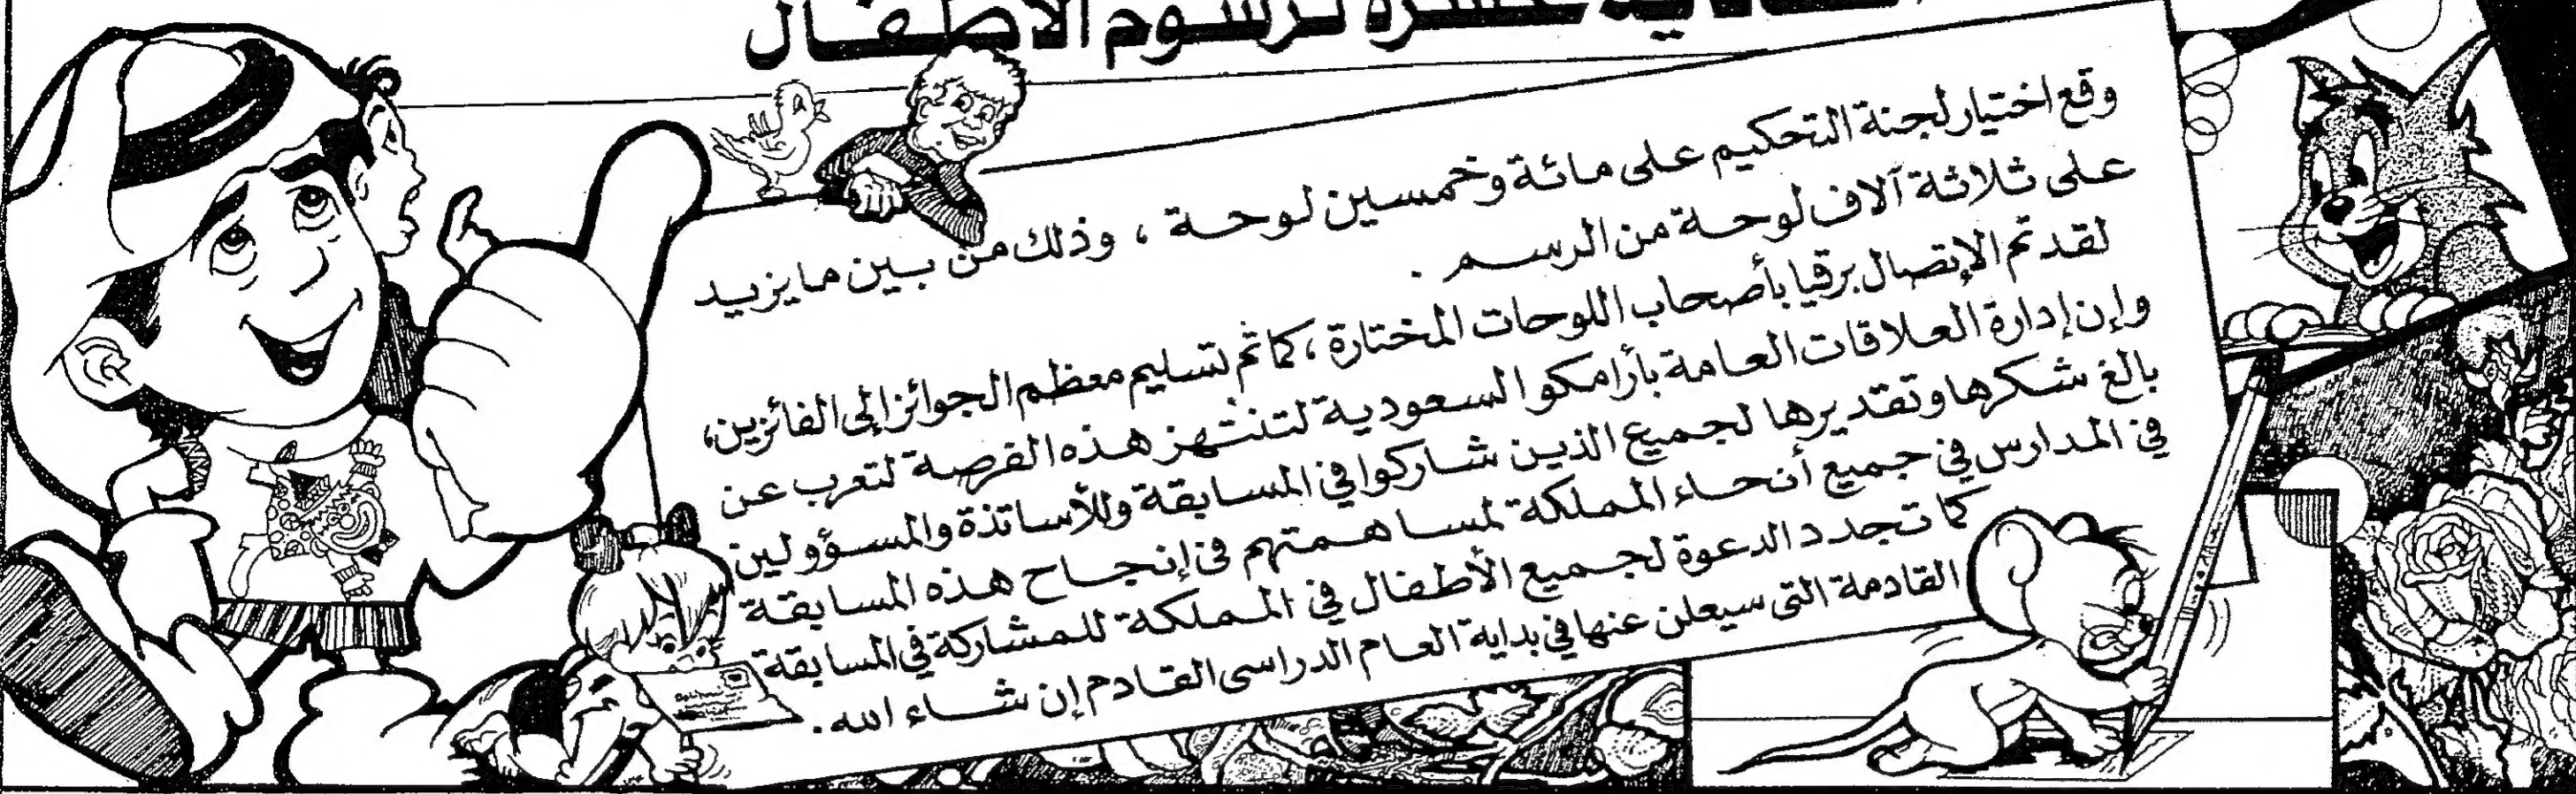 عشرة لرسوم الأطفال
وقع اختيار لجنة التحكيم على مائة وخمسين لوحة ، وذلك من بين مايزيد
على ثلاثة آلاف لوحة من الرسم .
لقد تم الإتصال برقيا بأصحاب اللوحات المختارة ، كما تم تسليم معظم الجوائز إلى الفائزين،
وإن إدارة العلاقات العامة بأرامكو السعودية لتنتهز هذه الفرصة لتعرب عن
بالغ شكرها وتقديرها لجميع الذين شاركوا في المسابقة وللأساتذة والمسؤولين
في المدارس في جميع أنحاء المملكة لمساهمتهم في إنجاح هذه المسابقة
كما تجدد الدعوة لجميع الأطفال في المملكة للمشاركة في المسابقة
القادمة التى سيعلن عنها في بداية العام الدراسى القادم إن شاء الله .